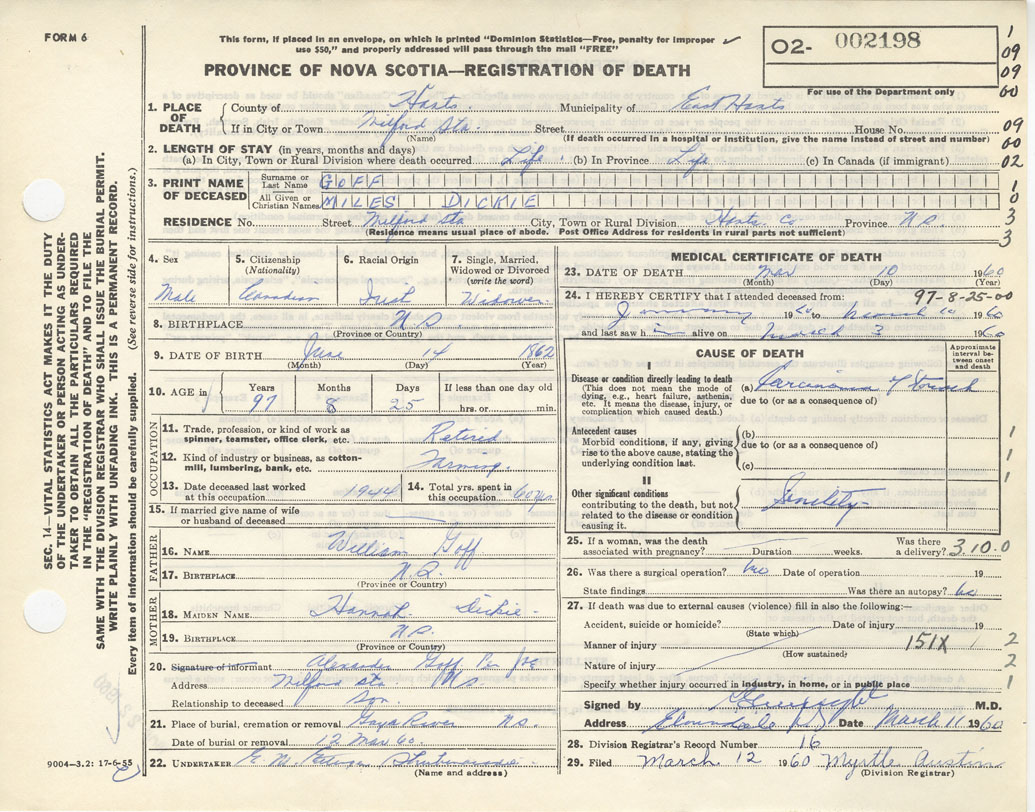 FORM 6
This form, if placed in an envelope, on which is printed "Dominion Statistics—Free, penalty for improper
use $50," and properly addressed will pass through the mail "FREE"
O2- 002198
For use of the Department only
PROVINCE OF NOVA SCOTIA—REGISTRATION OF DEATH
1. PLACE OF DEATH
County of Hants Municipality of East Hants
If in City or Town Milford Sta. Street House No.
(Name) (If death occurred in a hospital or institution, give the name instead of street and number)
2. LENGTH OF STAY (in years, months and days)
(a) In City, Town or Rural Division where death occurred Life (b) In Province Life (c) In Canada (if immigrant)
3. PRINT NAME OF DECEASED
Surname or Last Name GOFF
All Given or Christian Names MILES DICKIE
RESIDENCE No. Street Milford Sta City, Town or Rural Division Hants Co Province N.S.
(Residence means usual place of abode. Post Office Address for residents in rural parts not sufficient)
1
09
09
00
09
00
02
1
0
3
3
4. Sex
Male
5. Citizenship
(Nationality)
Canadian
6. Racial Origin
Irish
7. Single, Married,
Widowed or Divorced
(write the word)
Widower
8. BIRTHPLACE N.S.
(Province or Country)
9. DATE OF BIRTH June 14 1862
(Month) (Day) (Year)
10. AGE in
Years Months Days If less than one day old
97 8 25 hrs. or min.
OCCUPATION
11. Trade, profession, or kind of work as
spinner, teamster, office clerk, etc. Retired
12. Kind of industry or business, as cotton-
mill, lumbering, bank, etc. Farming.
13. Date deceased last worked
at this occupation 1944
14. Total yrs. spent in
this occupation 60 yrs
15. If married give name of wife
or husband of deceased
FATHER
16. NAME William Goff
17. BIRTHPLACE N.S.
(Province or Country)
MOTHER
18. MAIDEN NAME Hannah Dickie
19. BIRTHPLACE N.S.
(Province or Country)
20. Signature of informant Alexander Goff Per
Address Milford Sta. N.S.
Relationship to deceased Son
21. Place of burial, cremation or removal Gays River N.S.
Date of burial or removal 12 Mar 60.
22. UNDERTAKER E. M. Shubenacadie
(Name and address)
MEDICAL CERTIFICATE OF DEATH
23. DATE OF DEATH Mar 10 1960
(Month) (Day) (Year)
24. I HEREBY CERTIFY that I attended deceased from: 97-8-25-00
January 1960 to March 10 1960
and last saw h im alive on March 3 1960
CAUSE OF DEATH
Approximate interval between onset and death
I
Disease or condition directly leading to death
(This does not mean the mode of
dying, e.g., heart failure, asthenia,
etc. It means the disease, injury, or
complication which caused death.)
(a) Carcinoma of Stomach
due to (or as a consequence of)
Antecedent causes
Morbid conditions, if any, giving
rise to the above cause, stating the
underlying condition last.
(b)
due to (or as a consequence of)
(c)
II
Other significant conditions
contributing to the death, but not
related to the disease or condition
causing it.
Senility
1
1
1
25. If a woman, was the death
associated with pregnancy? Duration weeks. Was there
a delivery? 310.0
26. Was there a surgical operation? No Date of operation 19
State findings Was there an autopsy? No
27. If death was due to external causes (violence) fill in also the following:—
Accident, suicide or homicide? Date of injury 19
(State which)
Manner of injury 151X
(How sustained)
Nature of injury
Specify whether injury occurred in industry, in home, or in public place
2
2
1
Signed by M.D.
Address Elmsdale N.S. Date March 11 1960
28. Division Registrar's Record Number 16
29. Filed March 12 1960 Myrtle Austin
(Division Registrar)
SEC. 14—VITAL STATISTICS ACT MAKES IT THE DUTY
OF THE UNDERTAKER OR PERSON ACTING AS UNDER-
TAKER TO OBTAIN ALL THE PARTICULARS REQUIRED
IN THE "REGISTRATION OF DEATH" AND TO FILE THE
SAME WITH THE DIVISION REGISTRAR WHO SHALL ISSUE THE BURIAL PERMIT.
WRITE PLAINLY WITH UNFADING INK. THIS IS A PERMANENT RECORD.
Every item of information should be carefully supplied. (See reverse side for instructions.)
9004—3.2: 17-6-55